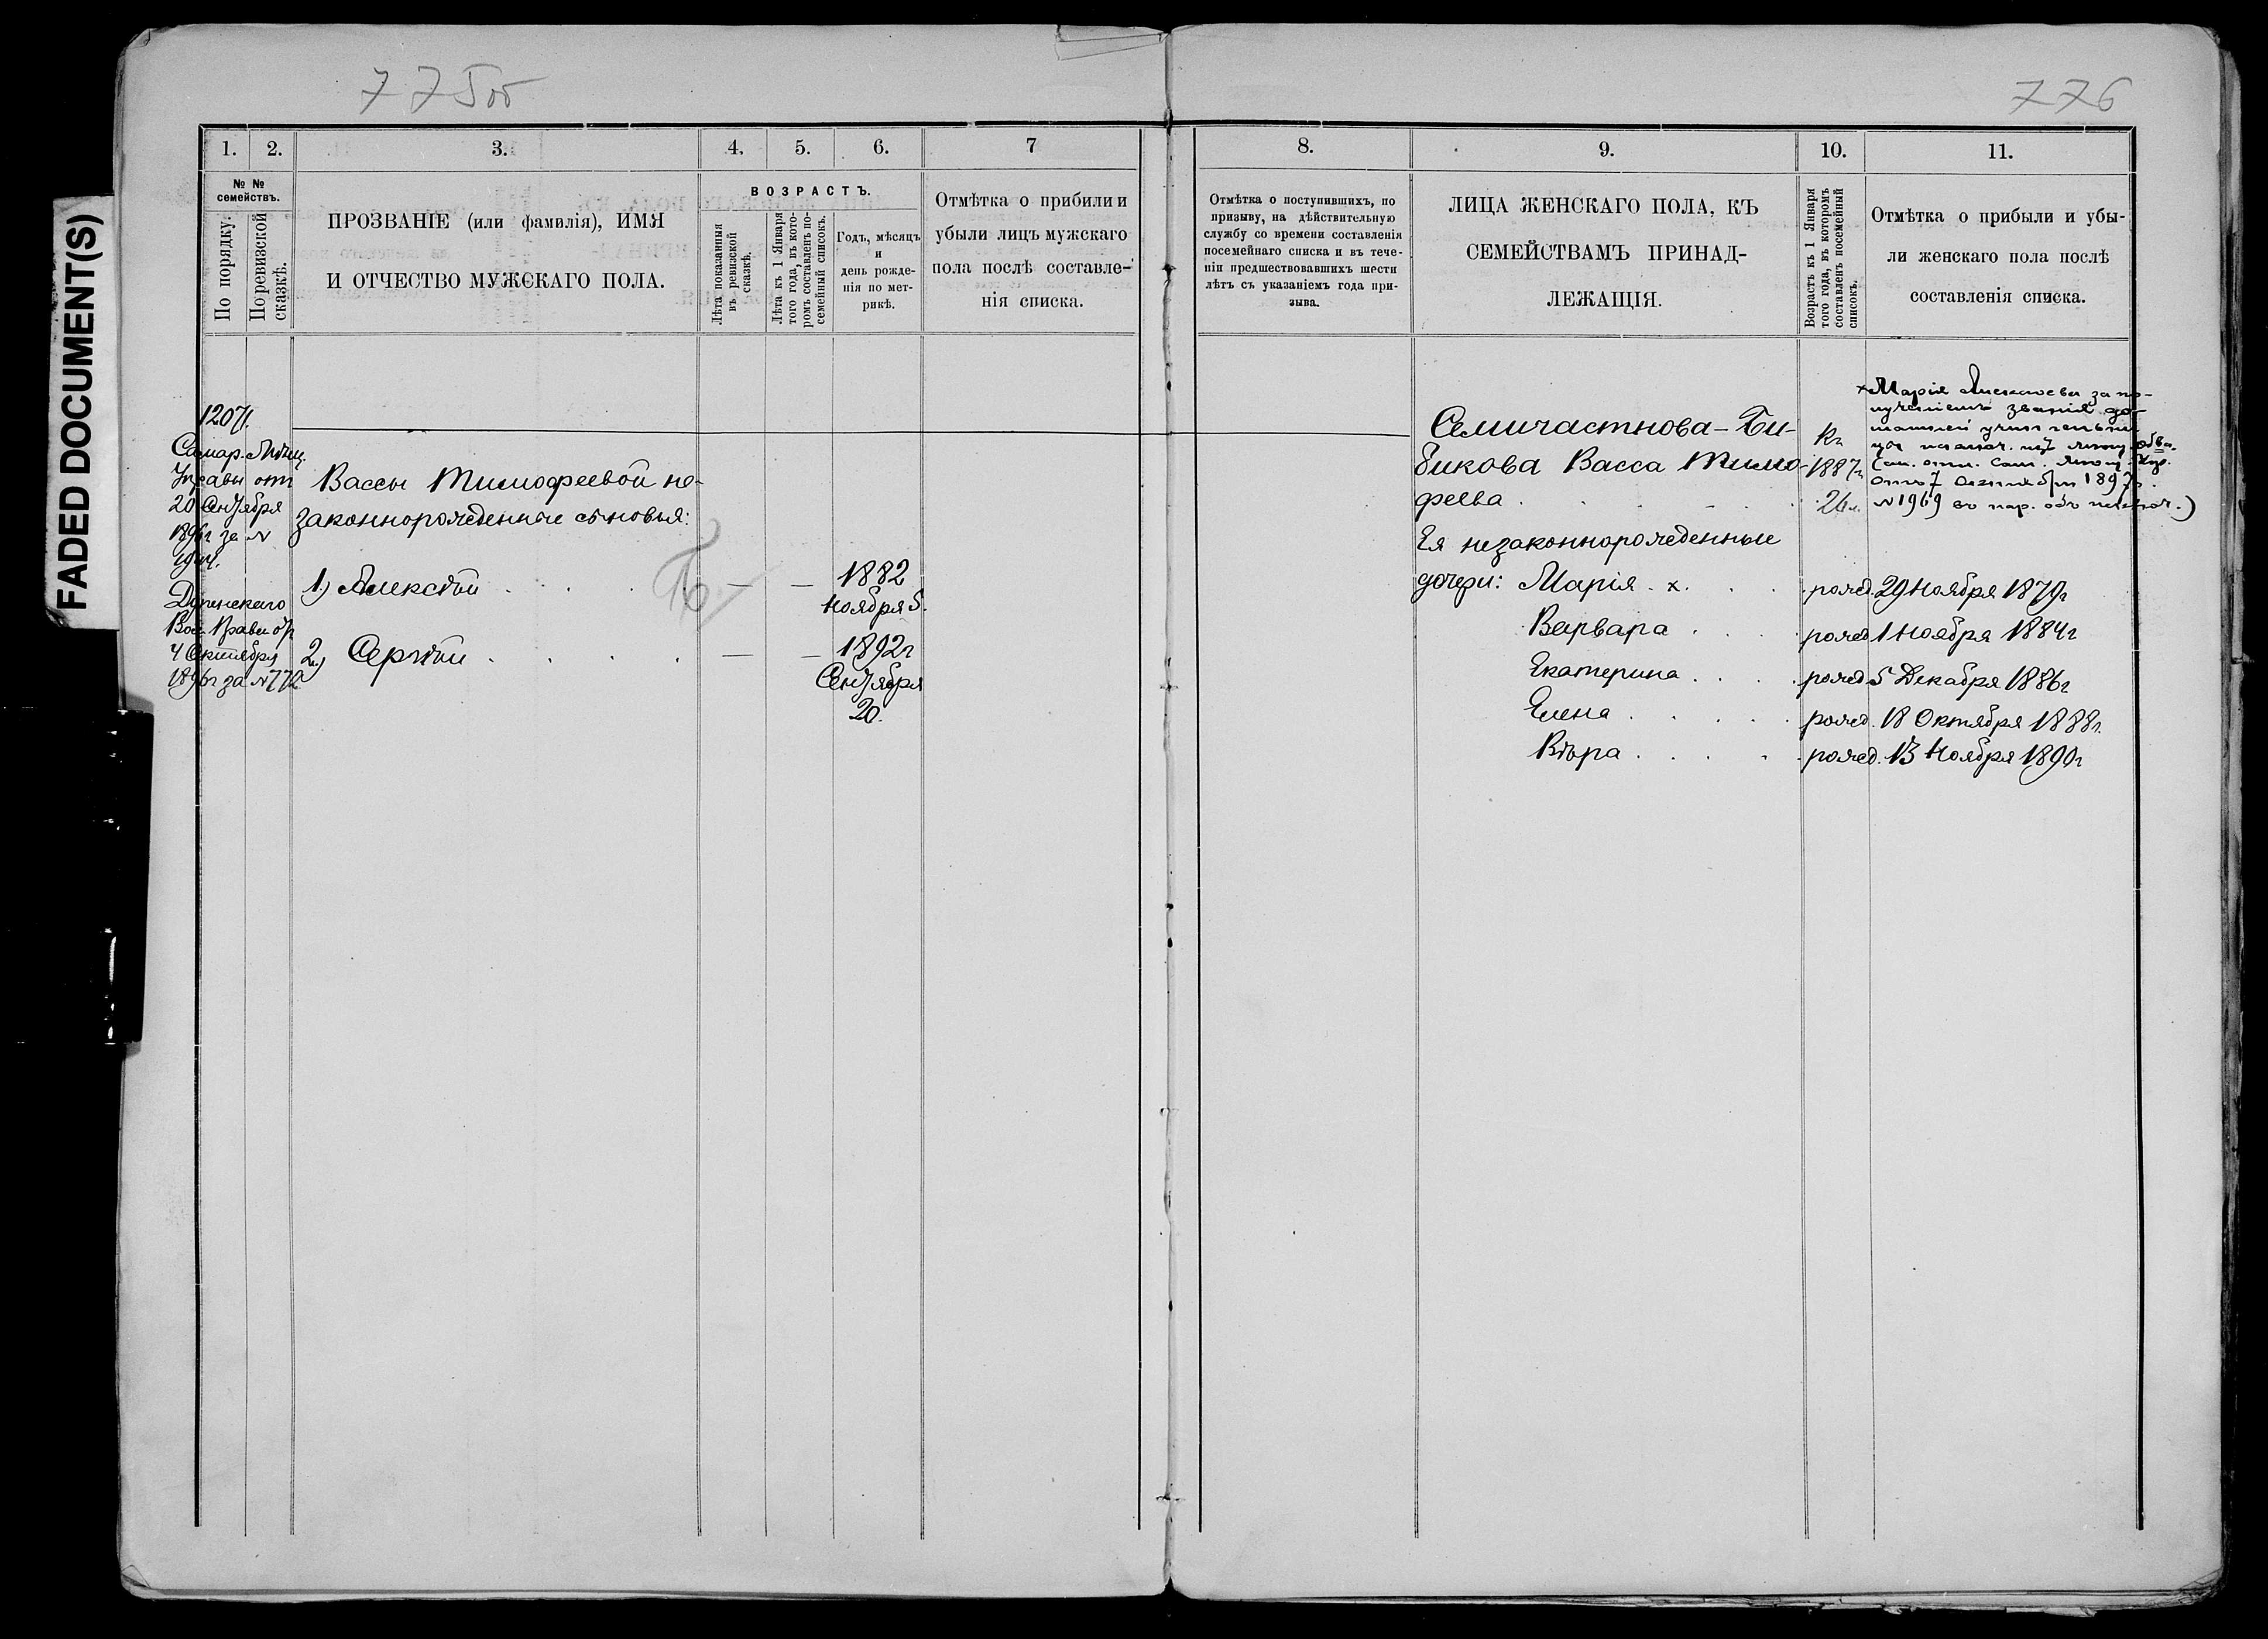 FADED DOCUMENT(S)
775об
776
1. 2. 3. 4. 5. 6. 7
№ №
семействъ.
По порядку.
По ревизской
сказкѣ.
ПРОЗВАНІЕ (или фамилія), ИМЯ
И ОТЧЕСТВО МУЖСКАГО ПОЛА.
ВОЗРАСТЪ.
Лѣта показанныя
въ ревизской
сказкѣ.
Лѣта къ 1 Января
того года, въ кото-
ромъ составленъ по-
семейный списокъ.
Годъ, мѣсяцъ
и
день рожде-
нія по мет-
рикѣ.
Отмѣтка о прибили и
убыли лицъ мужскаго
пола послѣ составле-
нія списка.
1207.
Самар. Мѣщ.
Управы отъ
20 Сентября
1896г за №
Вол. Правл от
4 Октября
1896г за №772
Вассы Тимофеевой не-
законнорожденные сыновья:
1) Алексѣй . . . . — — 1882
Ноября 5.
2) Сергѣй . . . . — — 1892г
Сентября
20.
8. 9. 10. 11.
Отмѣтка о поступившихъ, по
призыву, на дѣйствительную
службу со времени составленія
посемейнаго списка и въ тече-
ніи предшествовавшихъ шести
лѣтъ съ указаніемъ года при-
зыва.
ЛИЦА ЖЕНСКАГО ПОЛА, КЪ
СЕМЕЙСТВАМЪ ПРИНАД-
ЛЕЖАЩІЯ.
Возрастъ къ 1 Января
того года, въ которомъ
составленъ посемейный
списокъ.
Отмѣтка о прибыли и убы-
ли женскаго пола послѣ
составленія списка.
Семичастнова-Би-
бикова Васса Тимо-
феева . . . .
Къ
1887г
26л.
х Марія Алексеева за по-
лученіемъ званія до-
машней учительни
цы исключ. изъ мѣщ. обва.
отъ 7 Сентября 1897г.
№1969
Ея незаконнорожденные
дочери: Марія . х . . . рожд. 29 Ноября 1879г
Варвара . . . . рожд 1 Ноября 1884г
Екатерина . . . . рожд 5 Декабря 1886г
Елена . . . . . рожд. 18 Октября 1888г.
Вѣра . . . . . рожд. 13 Ноября 1890г